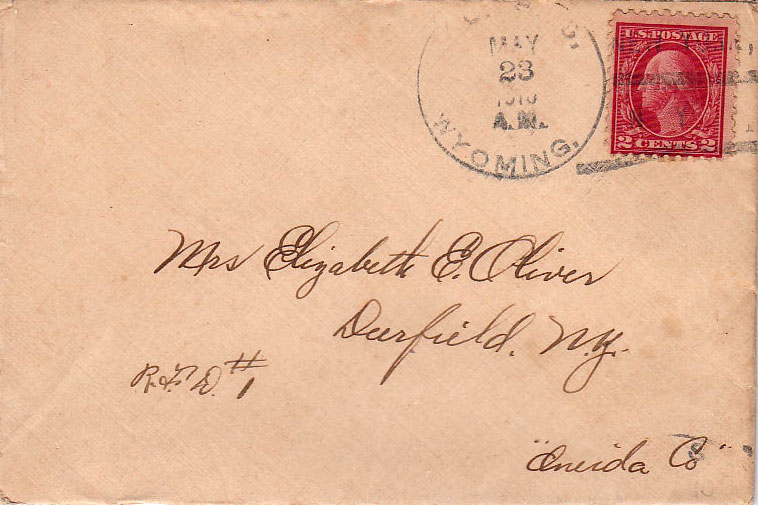 MAY
23
A.M.
WYOMING.
U.S. POSTAGE
2 CENTS 2
Mrs Elizabeth E. Oliver
Deerfield. N.Y.
R.F.D. #1
"Oneida Co"